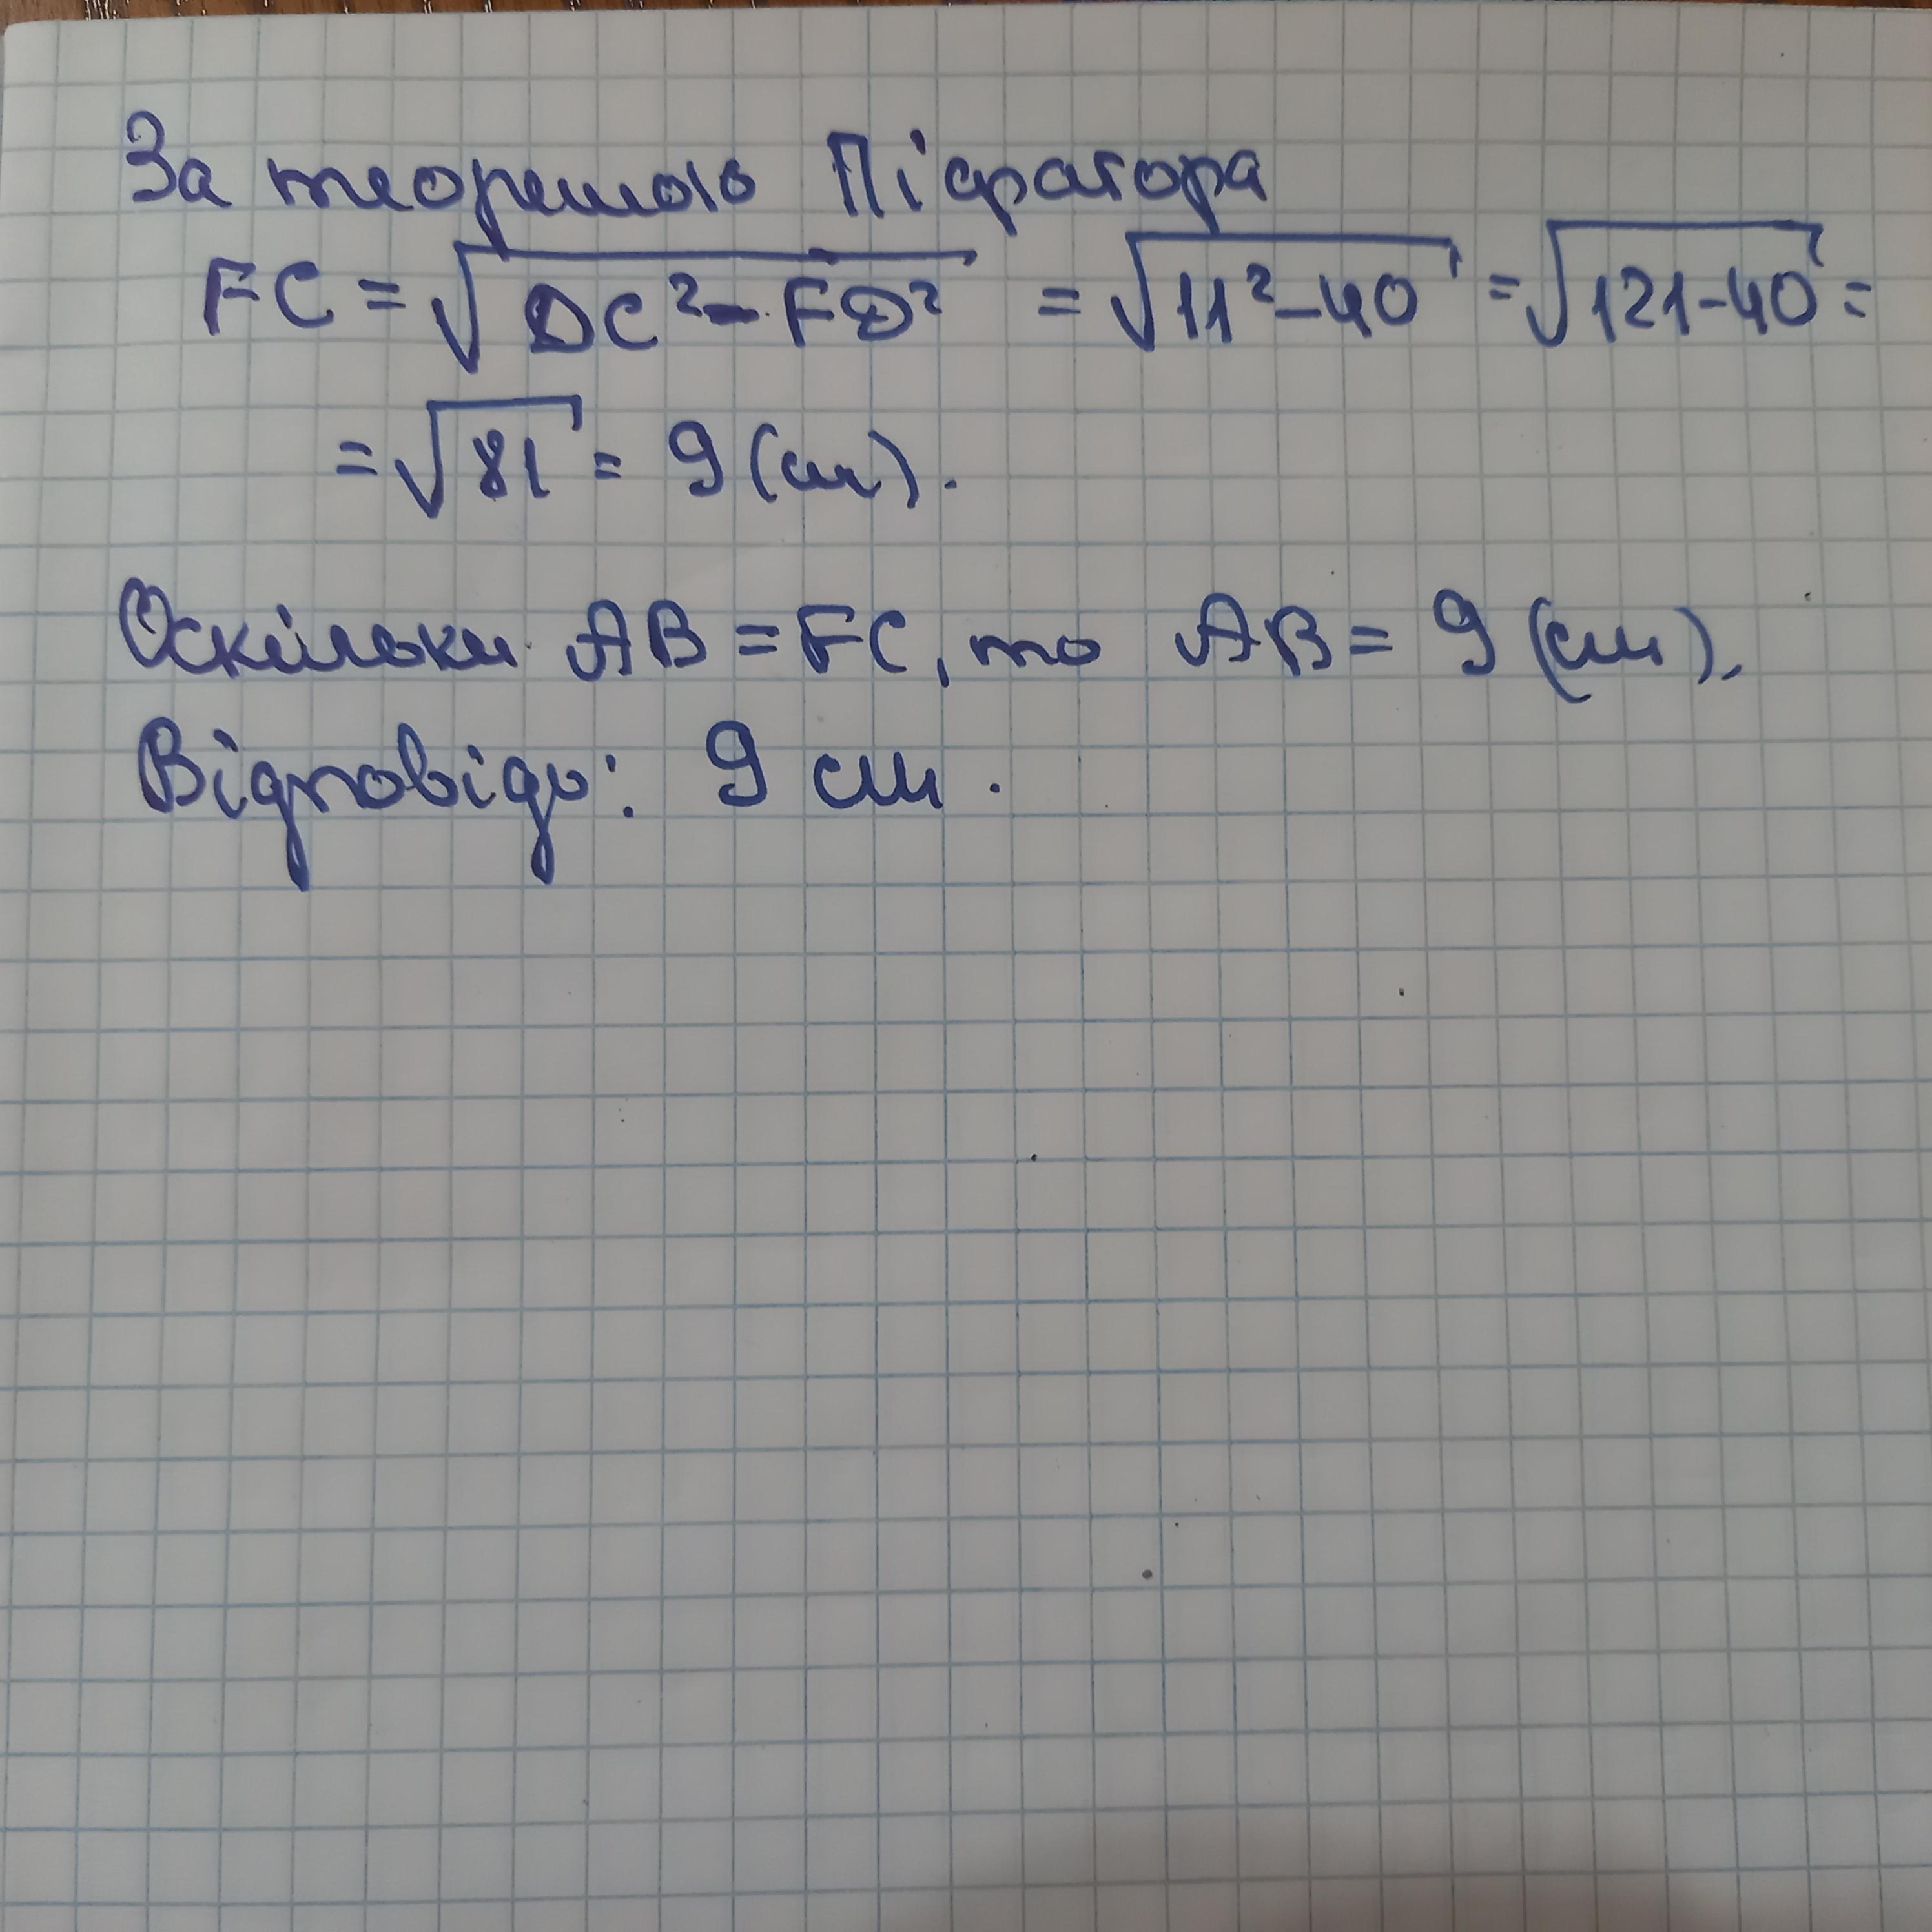 За теоремою Піфагора
FC = √DC² - FD² = √11² - 40 = √121 - 40 =
= √81 = 9 (см).
Оскільки AB = FC, то AB = 9 (см).
Відповідь: 9 см.